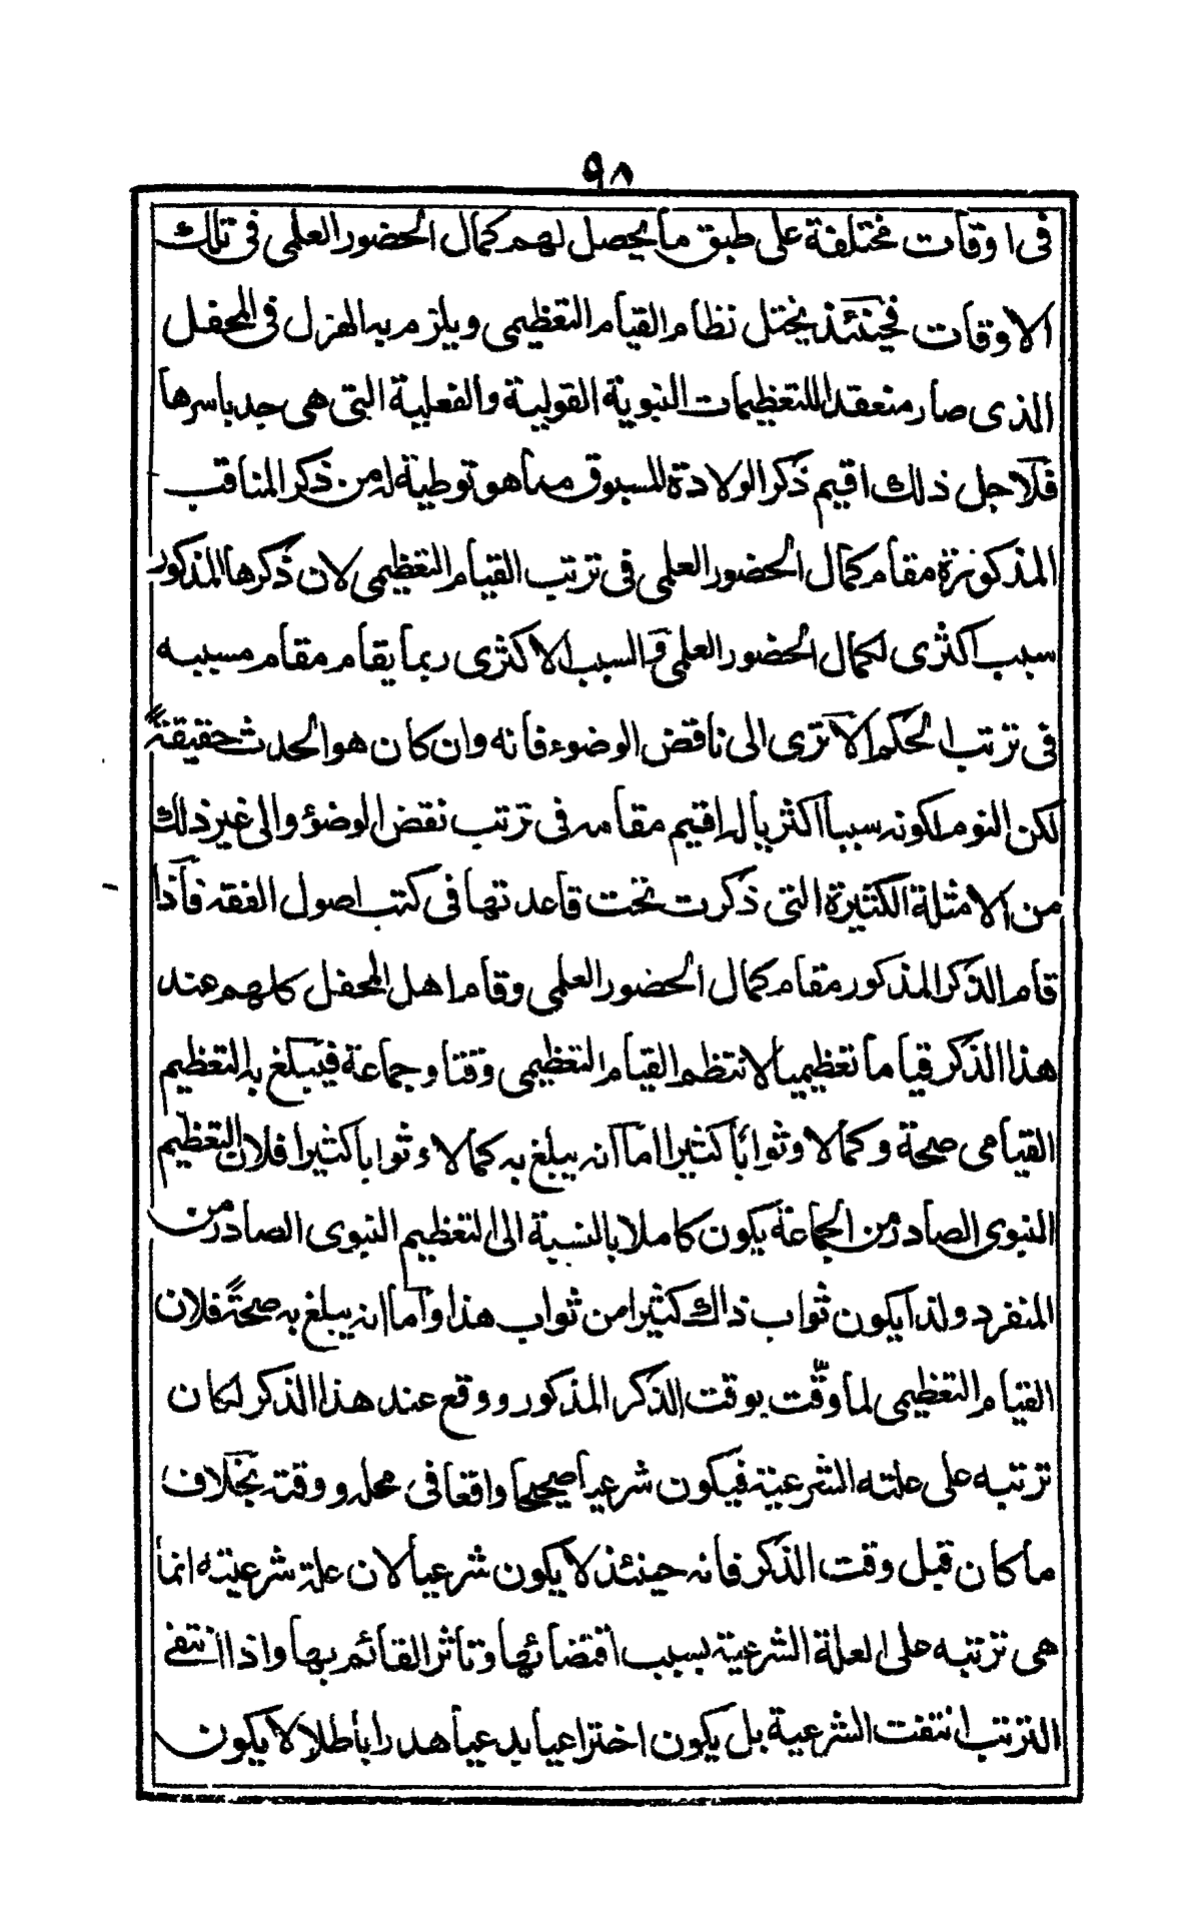 ٩٨
فى اوقات مختلفة على طبق ما يحصل لهم كمال الحضور العلمى فى تلك
الاوقات فحينئذ يختل نظام القيام التعظيمى ويلزم به الهزل فى المحفل
الذى صار منعقدا للتعظيمات النبوية القولية والفعلية التى هى جد باسرها
فلاجل ذلك اقيم ذكر الولادة للسبوق مما هو توطية له من ذكر المناقب
المذكورة مقام كمال الحضور العلمى فى ترتب القيام التعظيمى لان ذكرها المذكور
سبب اكثرى لكمال الحضور العلمى و السبب الاكثرى ربما يقام مقام مسببه
فى ترتب الحكم الا ترى الى ناقض الوضوء فانه وان كان هو الحدث حقيقةً
لكن النوم لكونه سببا اكثريا له اقيم مقامه فى ترتب نقض الوضؤ والى غير ذلك
من الامثلة الكثيرة التى ذكرت تحت قاعدتها فى كتب اصول الفقه فاذا
قام الذكر المذكور مقام كمال الحضور العلمى وقام اهل المحفل كلهم عند
هذا الذكر قياما تعظيميا لانتظم القيام التعظيمى وقتا وجماعة فيبلغ به التعظيم
القيامى صحة وكمالا وثوابا كثيرا اما انه يبلغ به كمالاء ثوابا كثيرا فلان التعظيم
النبوى الصادر من الجماعة يكون كاملا بالنسبة الى التعظيم النبوى الصادر من
المنفرد ولذا يكون ثواب ذاك كثيرا من ثواب هذا واما انه يبلغ به صحةً فلان
القيام التعظيمى لما وقّت بوقت الذكر المذكور ووقع عند هذا الذكر لكان
ترتبه على علته الشرعية فيكون شرعيا صحيحا واقعا فى محله ووقته بخلاف
ما كان قبل وقت الذكر فانه حينئذ لا يكون شرعيا لان علة شرعيته انما
هى ترتبه على العلة الشرعية بسبب اقتضائها وتاثر القائم بها واذا انتفى
الترتب انتفت الشرعية بل يكون اختراعيا بدعيا هدرا باطلا لا يكون